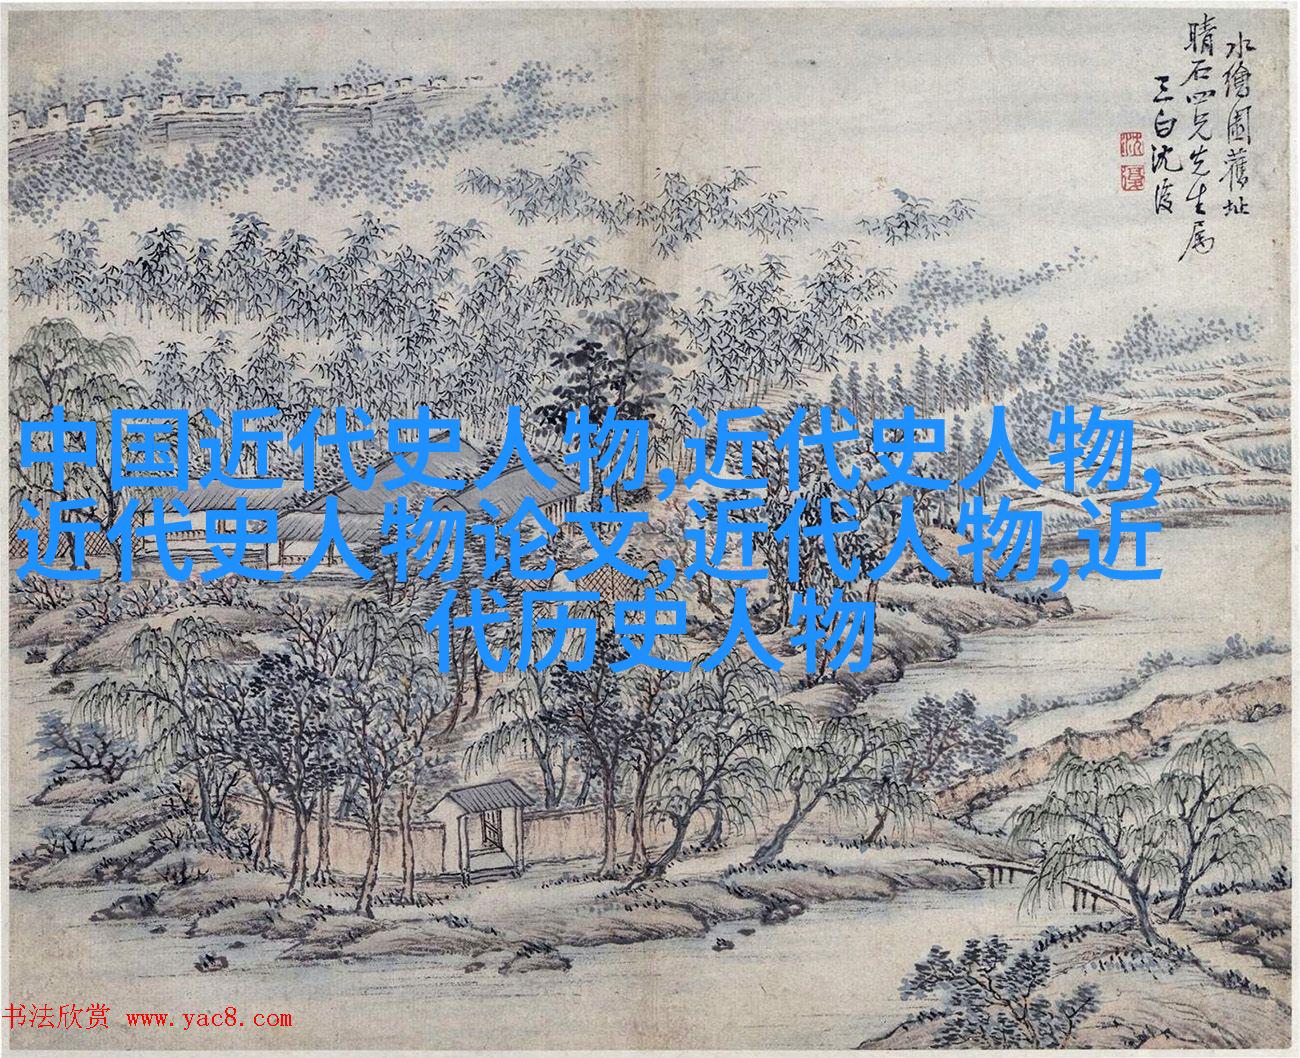 水繪園舊址
晴石四兄先生属
三白沈復
沈
復
中国近代史人物,近代史人物,
近代史人物论文,近代人物,近
代历史人物
书法欣赏 www.yac8.com